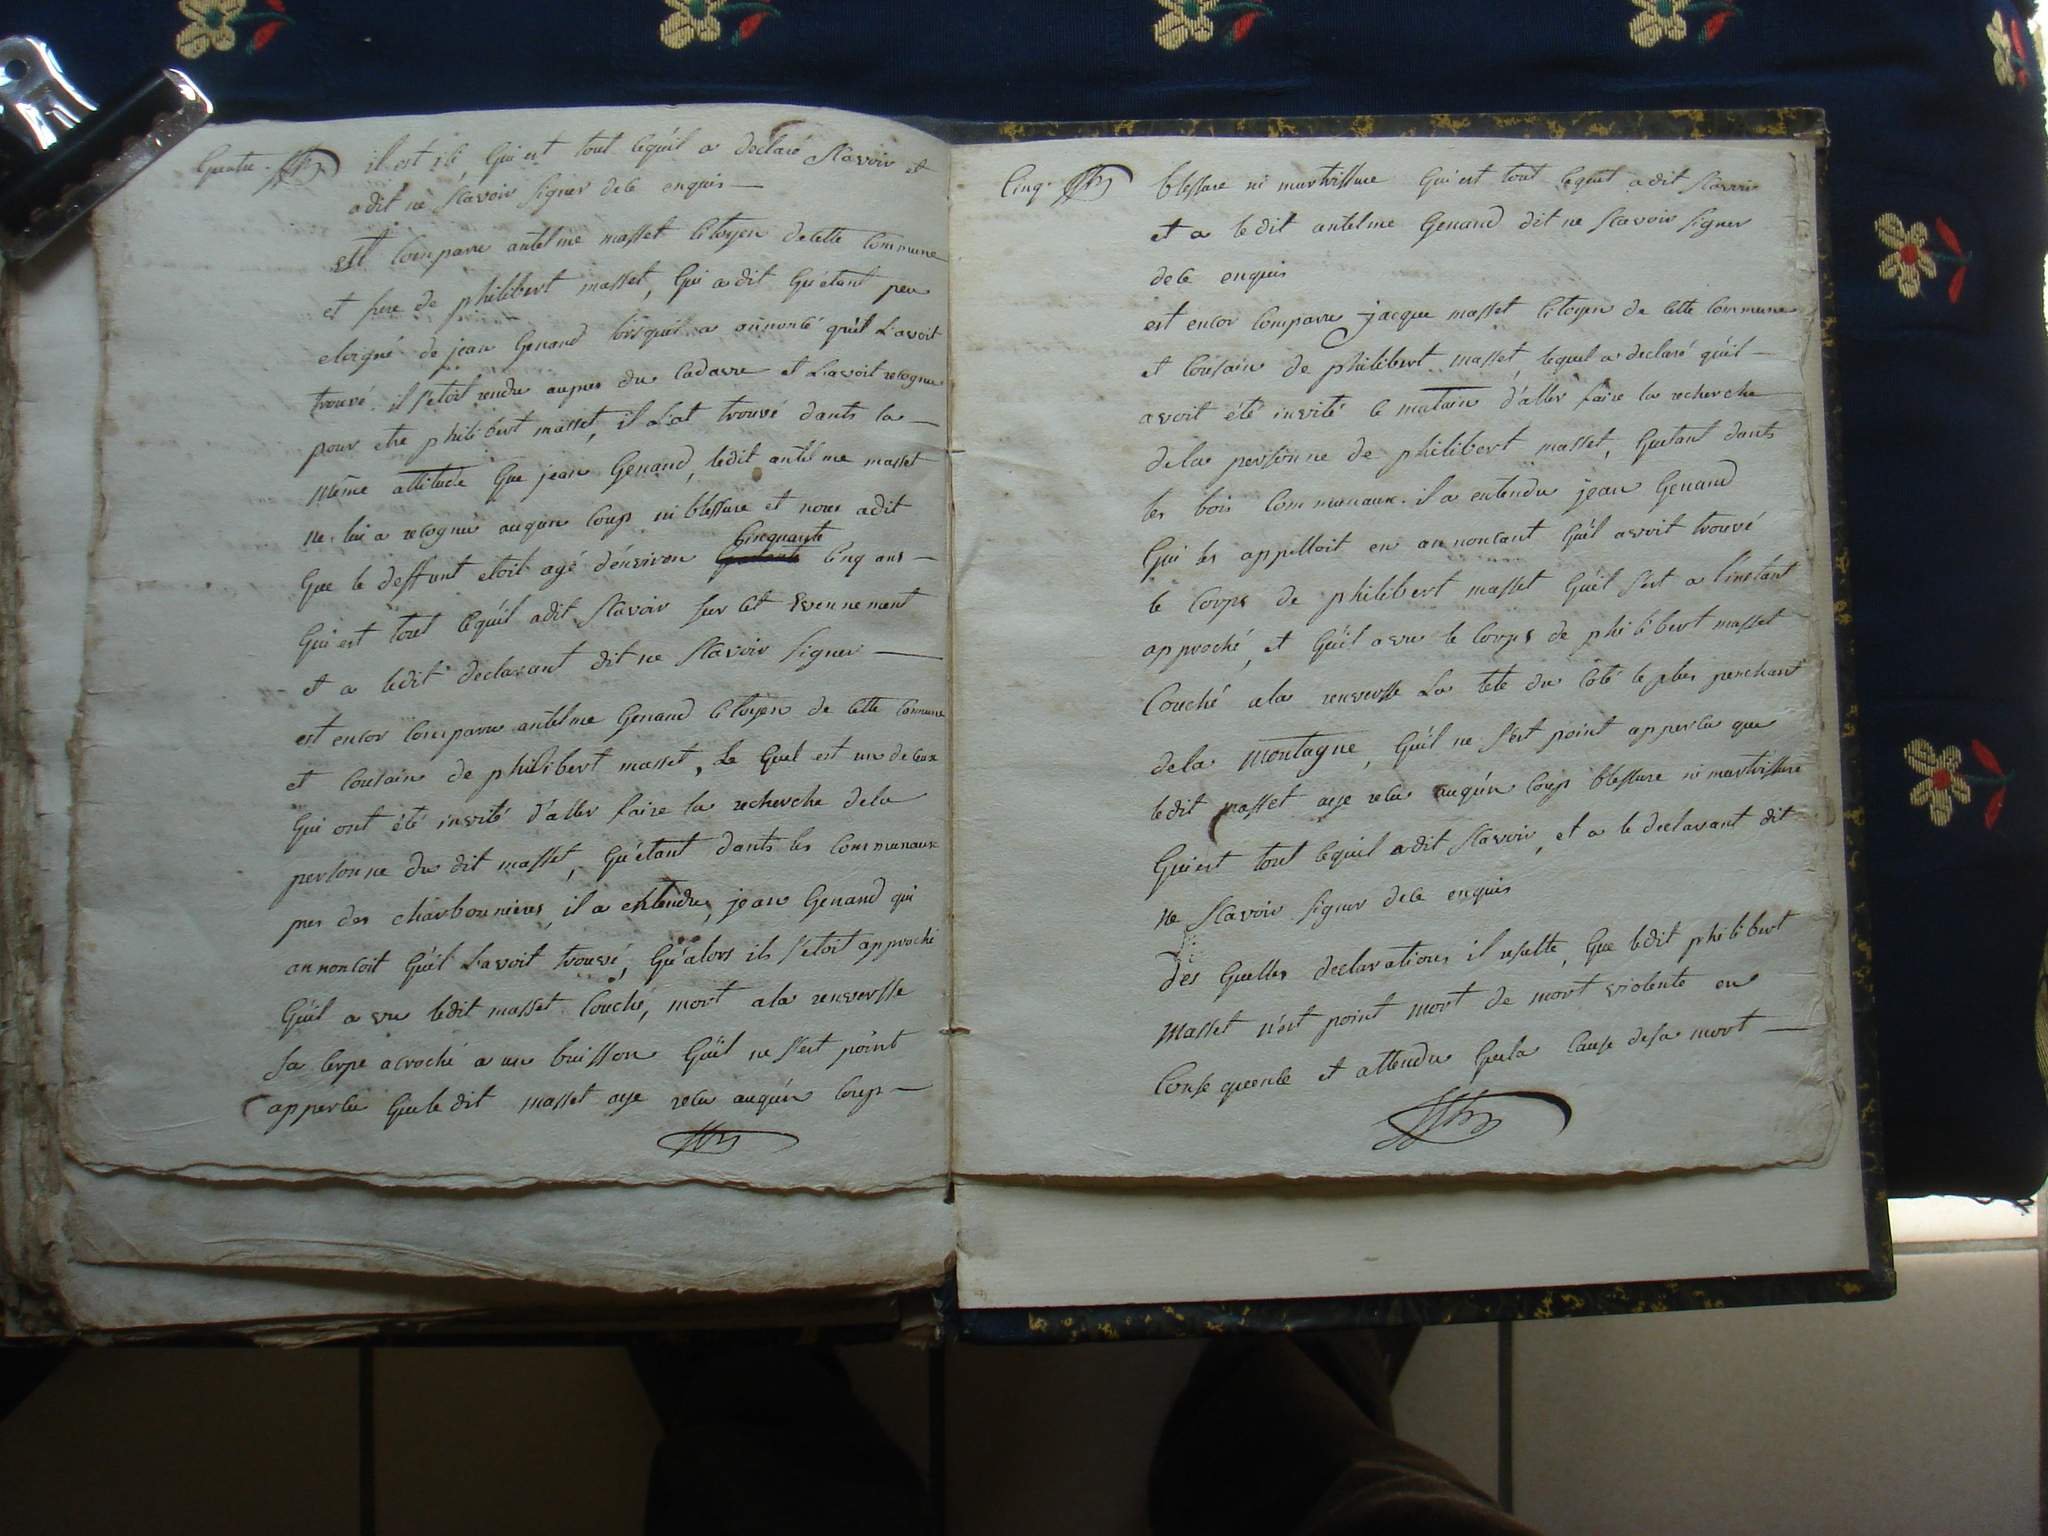 Quatre.
il est ici, Qui est tout cequil a declaré Scavoir et
adit ne Scavoir signer dece enquis —
est comparu antelme masset Citoyen decette Commune
et frere de philibert masset, Qui adit Qu'étant peu
eloigné de jean Genand lorsquil a annoncé qu'il L'avoit
trouvé il s'etoit rendu aupres du Cadavre et L'avoit recognu
pour etre philibert masset, il L'at trouvé dants la —
Même attitude Que jean Genand, ledit antelme masset
ne lui a recognu auqun Coup ni blessure et nous adit
Cinquante
Que le deffunt etoit agé d'environ Cinq ans —
Qui est tout cequil adit Scavoir sur cet Evennement
et a ledit declarant dit ne Scavoir signer —
est encor Comparu antelme Genand Citoyen de cette Commune
et Cousain de philibert masset, Le Quel est un deceux
Qui ont été invité d'aller faire la recherche dela
personne du dit masset, Qu'étant dants les Communaux
pres des charbonnieres, il a entendu, jean Genand qui
annoncoit Qu'il L'avoit trouvé, Qu'alors ils s'etoit approché
Qu'il a vu ledit masset Couché, mort ala renversse
sa serpe acroché a un buisson Qu'il ne s'est point
apperçu Que le dit masset aye recu auqu'n Coup —
Cinq.
blessure ni murtrissure Qui est tout cequil adit Scavoir
et a ledit antelme Genand dit ne Scavoir signer
dece enquis
est encor Comparu jacque masset Citoyen de cette Commune
et Cousain de philibert masset, lequel a declaré qu'il —
avoit été invité ce matain d'aller faire la recherche
dela personne de philibert masset, Quetant dants
les bois Communaux. il a entendu jean Genand
Qui les appelloit en annoncant Qu'il avoit trouvé
le Corps de philibert masset Qu'il s'est a l'instant
approché, et Qu'il avu le Corps de philibert masset
Couché ala renversse La tete du Coté le plus penchant
dela Montagne, Qu'il ne s'est point apperçu que
ledit masset aye recu auqu'n Coup blessure ni murtrissure
Qui est tout cequil adit Scavoir, et a le declarant dit
Ne Scavoir signer dece enquis
Des Quelles declarations il resulte, Que ledit philibert
Masset n'est point mort de mort violente en
Consequence et attendu Quela Cause desa mort —